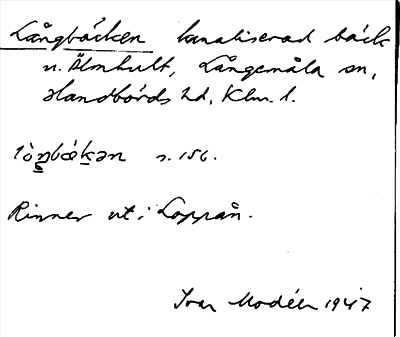 Långbäcken kanaliserad bäck
n. Älmhult, Långemåla sn,
Handbörds hd, Klm. l.
s. 156.
Rinner ut i Loppån.
Ivar Modéer 1947